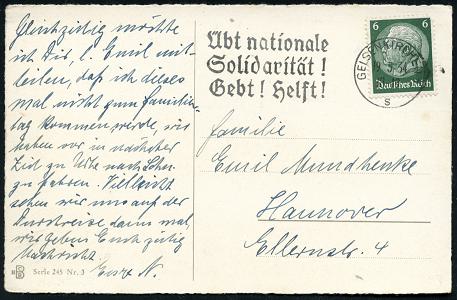 Gleichzeitig möchte
ich Dir, l. Emil mit-
teilen, daß ich dieses
mal nicht zum Familien
tag kommen werde, wir
haben vor in nächster
Zeit zu Uhe nach
zu fahren. Vielleicht
sehen wir uns auf der
Durchreise dann mal,
wir geben Euch zeitig
Nachricht.
N.
B
Serie 245 Nr. 3
Übt nationale
Solidarität!
Gebt! Helft!
GELSENKIRCHEN
S
6 6
Deutsches Reich
Familie
Emil Mundhenke
Hannover
Ellernstr. 4